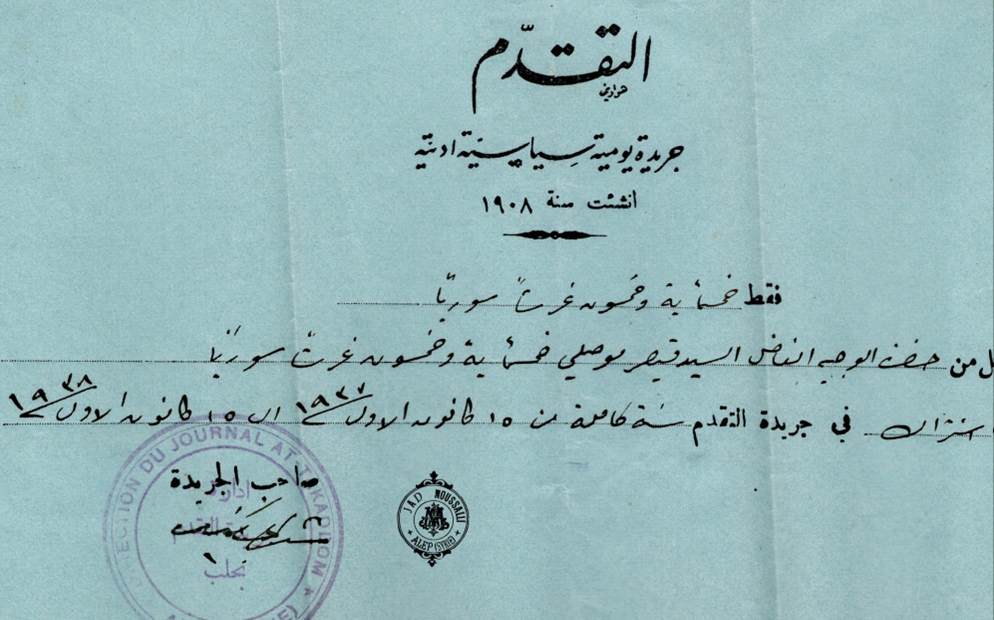 التقدّم
جريدة يومية سياسية ادبية
انشئت سنة ١٩٠٨
فقط خمسماية وخمسون غرشاً سورياً
من حضرة الوجيه الفاضل السيد قيصر موصلي خمسماية وخمسون غرشاً سورياً
اشتراك في جريدة التقدم سنة كاملة من ١٥ كانون الاول ١٩٣٧ الى ١٥ كانون الاول ١٩٣٨
صاحب الجريدة
DIRECTION DU JOURNAL AT-TAKADDOM
ادارة
التقدم
بحلب
JAD MOUSSALLI
ALEP (SYRIE)